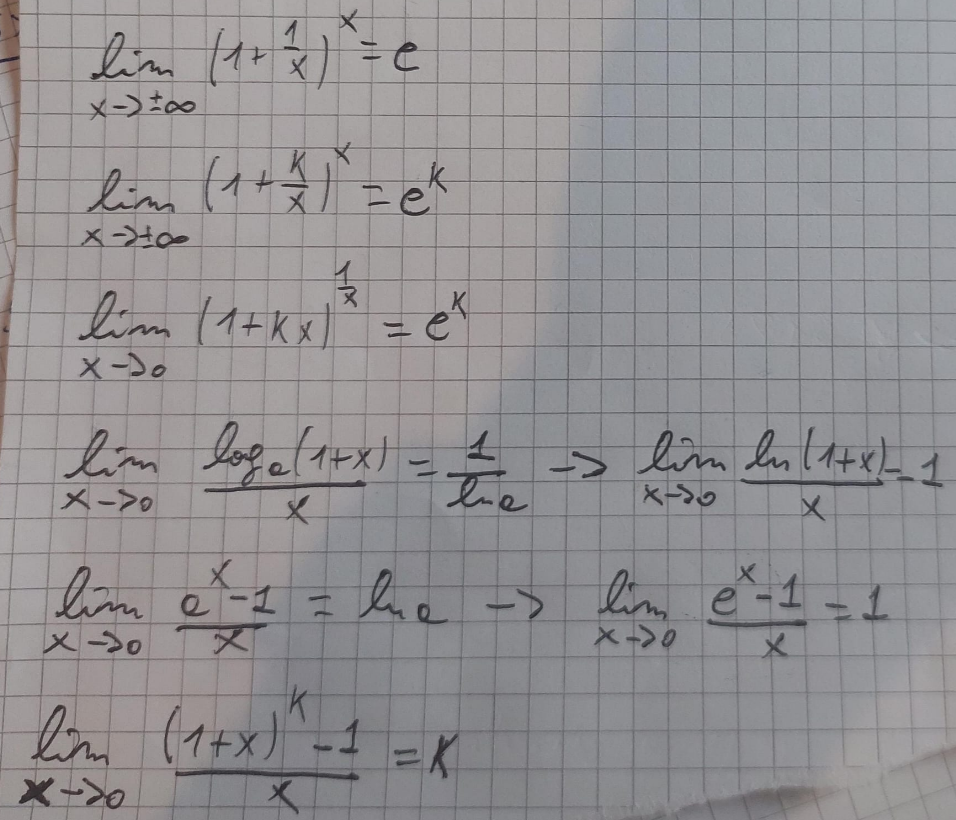 lim x->±∞ (1 + 1/x)^x = e
lim x->±∞ (1 + K/x)^x = e^K
lim x->0 (1 + Kx)^(1/x) = e^K
lim x->0 log_a(1+x)/x = 1/ln a -> lim x->0 ln(1+x)/x = 1
lim x->0 (a^x - 1)/x = ln a -> lim x->0 (e^x - 1)/x = 1
lim x->0 ((1+x)^K - 1)/x = K